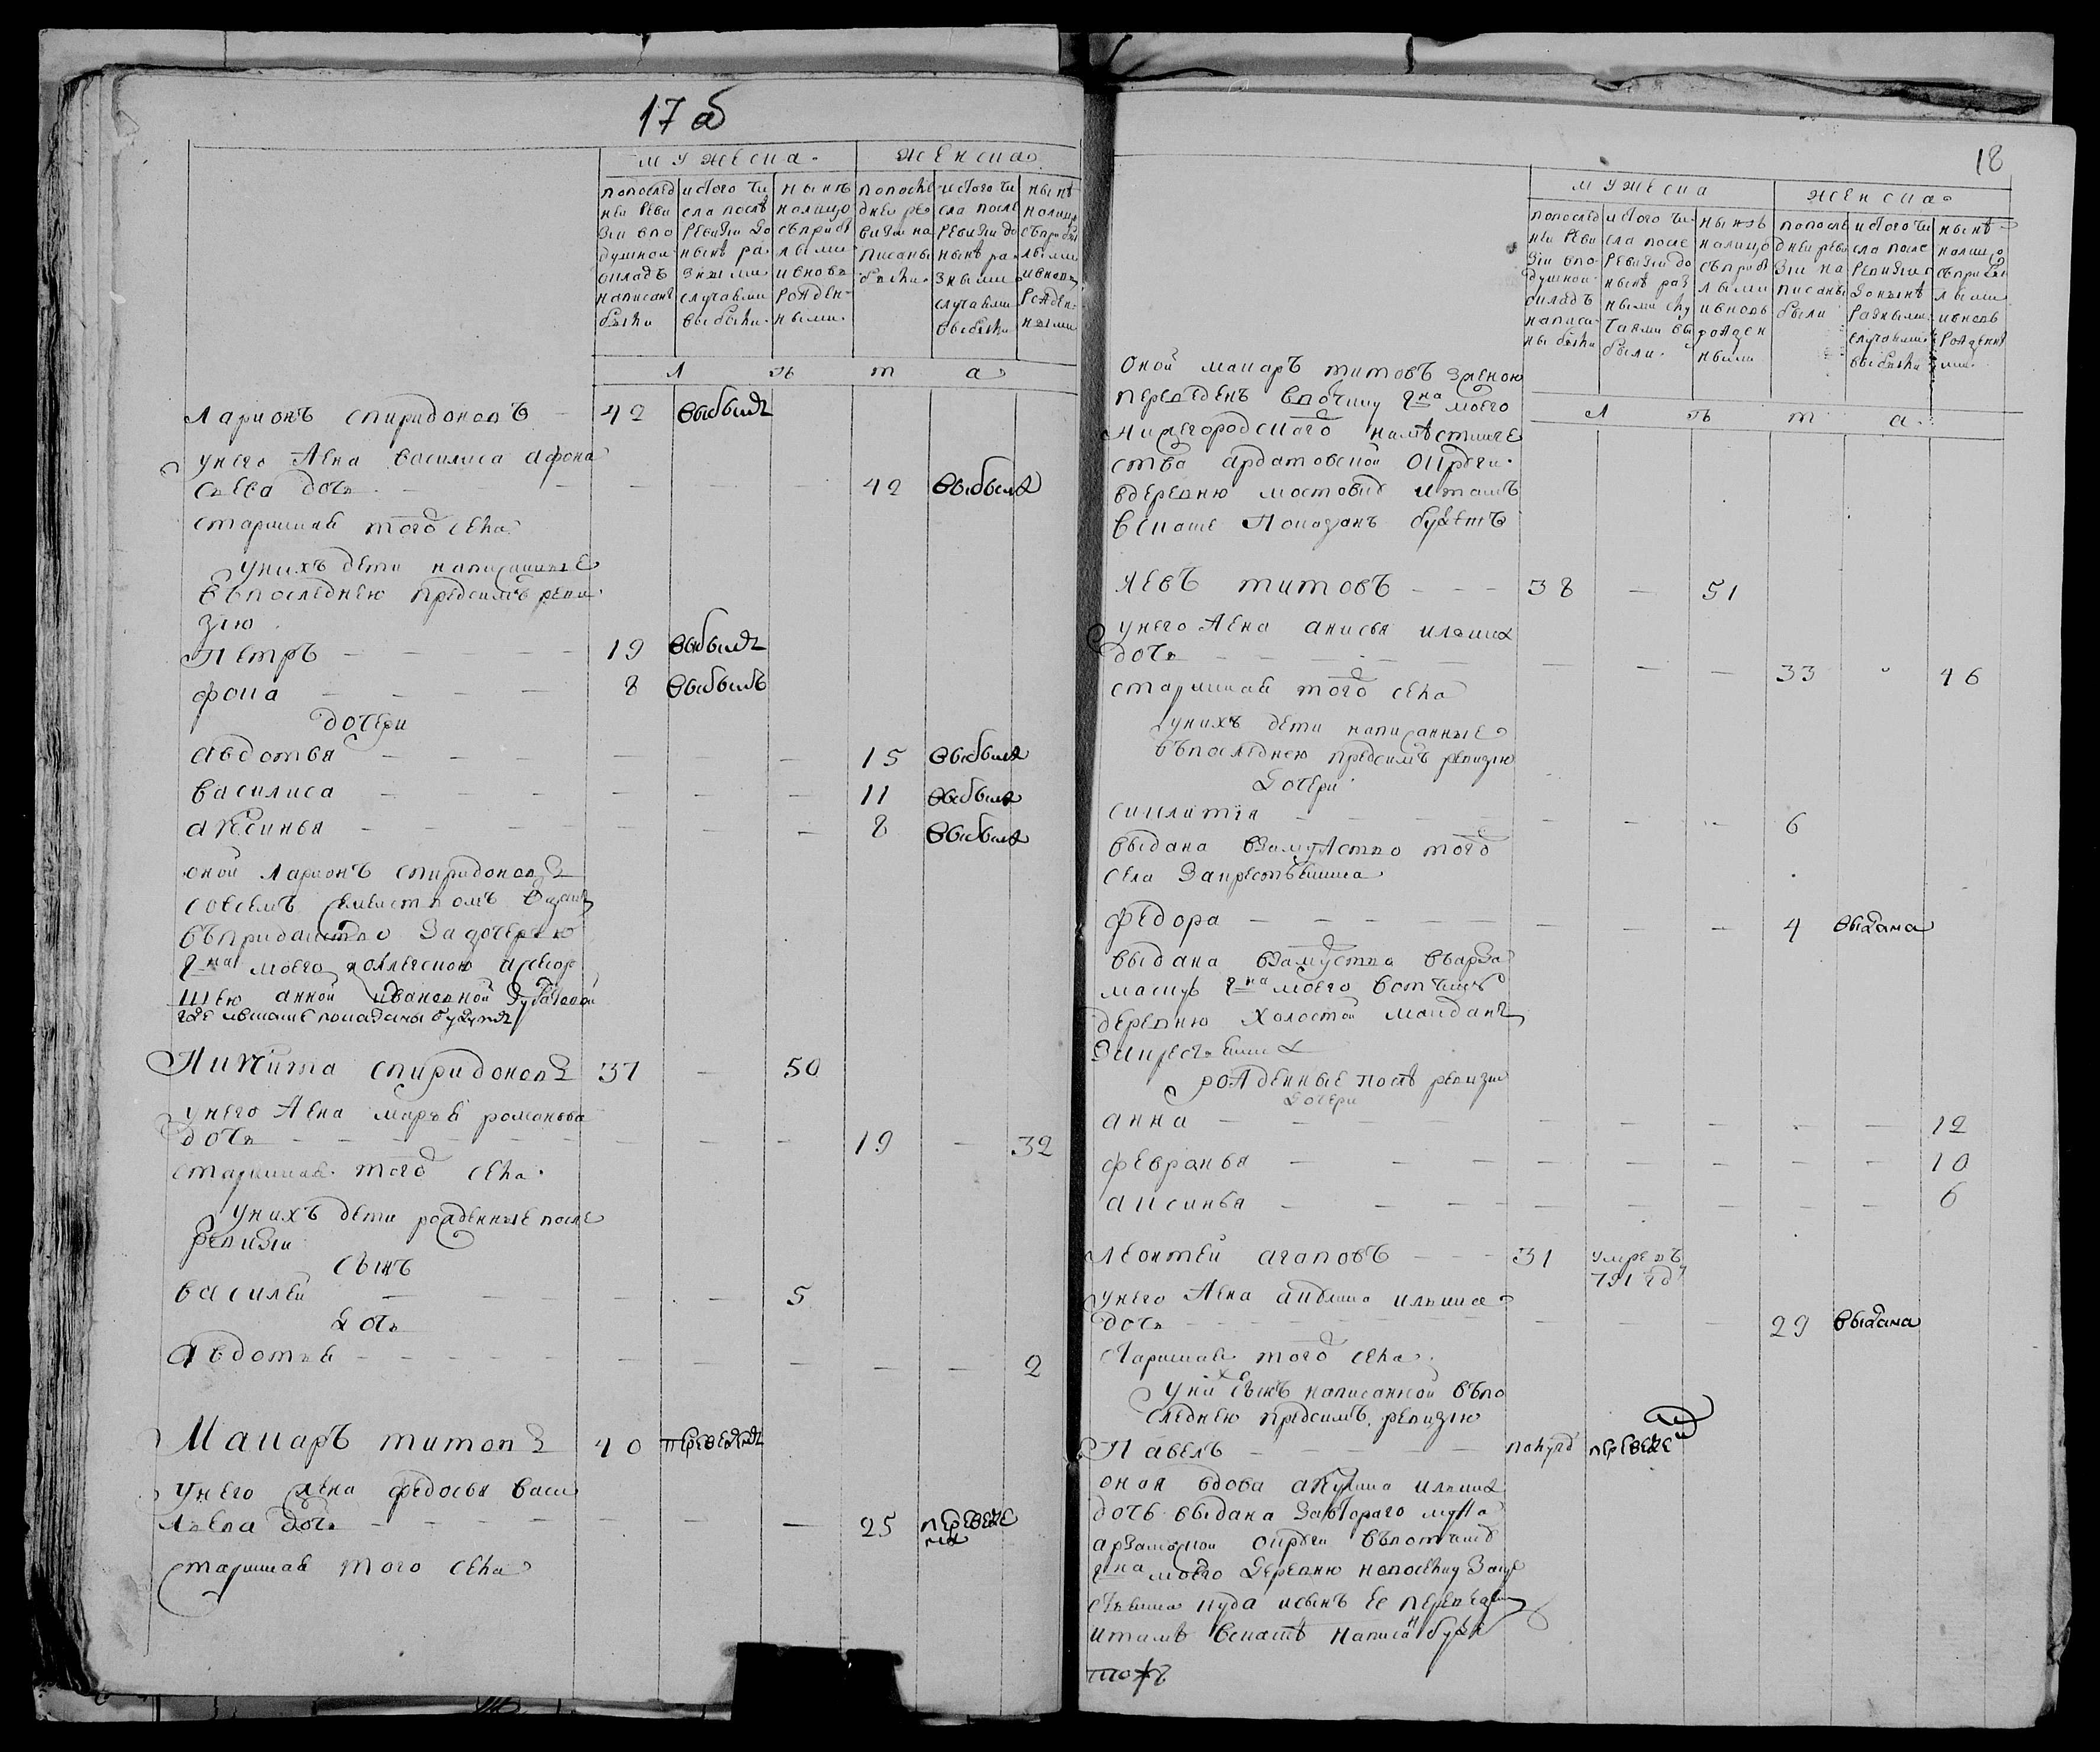 17 об
мужеска женска
попослед
ней Реви
зіи впо
душной
окладъ
написаны
были
исього чи
сла послѣ
Ревизіи до
нынѣ ра
зными
случаями
выбыли
нынѣ
налицо
съприбы
лыми
ивновь
рожден
ными
попослѣ
дней ре
визіи на
писаны
были
ис того чи
сла после
Ревизіи до
нынѣ ра
зными
случаями
выбыли
нынѣ
налицо
съприбы
лыми
ивновь
рожден
ными
л ѣ т а
Ларионъ спиридоновъ 42 выбылъ
унего жена василиса афона
сьева дочь 42 выбыла
старинная того села
унихъ дети написанные
въпоследнею предсимъ реви
зию
Петръ 19 выбылъ
фока 8 выбылъ
дочери
авдотья 15 выбыла
василиса 11 выбыла
аксинья 8 выбыла
оной Ларионъ спиридоновъ
совсемъ семействомъ
въприданство за дочерью
гна моего колежскою асесор
шею анной ивановной
где
Никита спиридоновъ 37 — 50
унего жена марья романова
дочь 19 — 32
старинная того села
унихъ дети рожденные после
ревизіи
сынъ
василей 5
дочь
авдотья 2
Макаръ титовъ 40 переведенъ
унего жена федосья васи
льева дочь 25 переведе
на
старинная того села
18
мужеска женска
попослед
ней Реви
зіи впо
душной
окладъ
написа
ны были
ис того чи
сла после
Ревизіи до
нынѣ раз
ными слу
чаями вы
были
нынѣ
налицо
съприб
лыми
ивновь
рожден
ными
попосле
дней реви
зіи на
писаны
были
ис того чи
сла после
Ревизіи
донынѣ
разными
случаями
выбыли
нынѣ
налицо
съприбы
лыми
ивновь
рожденн
ми
л ѣ т а
оной макаръ титовъ зженою
переведенъ ввотчину гна моего
нижегородского намѣстниче
ства ардатовской округи
вдеревню мостовую итамъ
всказке показанъ будетъ
левъ титовъ 38 — 51
унего жена анисья ильина
дочь 33 46
старинная того села
унихъ дети написанные
въпоследнею предсимъ ревизию
дочери
6
выдана взамужство того
села закрестьянина
федора 4 выдана
выдана взамужства въарза
маскую гна моего вотчину
деревню Холостой майданъ
закрестьянина
рожденные послѣ ревизии
дочери
анна 12
февранья 10
аксинья 6
леонтей агаповъ 31 умре въ
791 году
унего жена акулина ильина
дочь 29 выдана
Старинная того села
уних сынъ написанной въпо
следнею предсимъ ревизию
Павелъ полугод переведе
оная вдова акулина ильина
дочь выдана завтораго мужа
арзамаской округи въвотчину
гна моего деревню новоселку закре
стьянина исынъ ее переведен
итамъ всказкѣ написан буде
тожъ